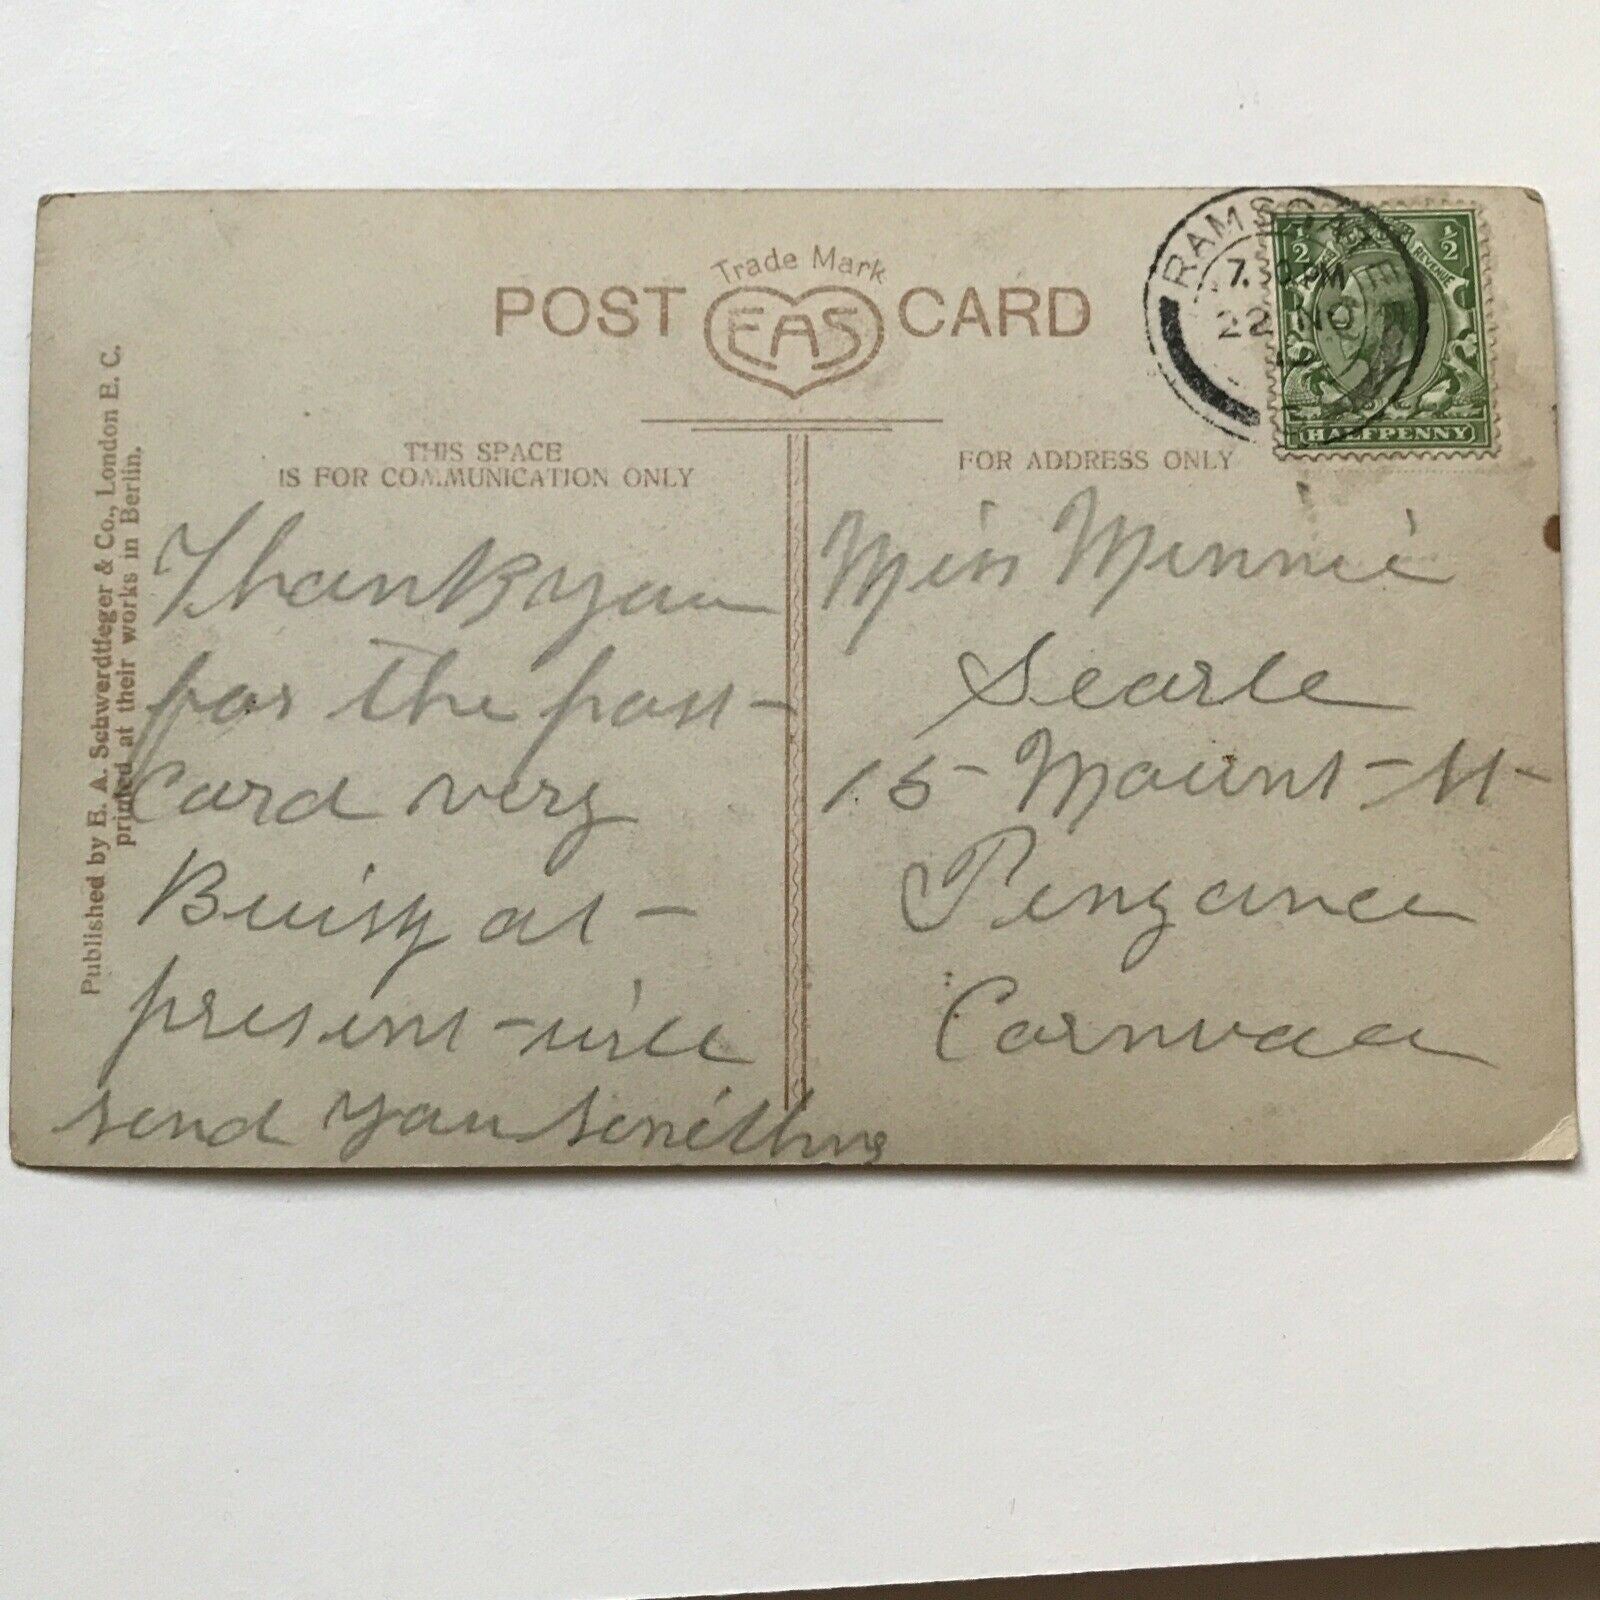 Trade Mark
POST EAS CARD
RAMSGATE
22 NO
1/2 1/2
REVENUE
HALFPENNY
THIS SPACE
IS FOR COMMUNICATION ONLY
FOR ADDRESS ONLY
Published by E. A. Schwerdtfeger & Co., London E. C.
printed at their works in Berlin.
Thank you
for the post
Card very
Buisy at
present will
send you something
Miss Minnie
Searle
15 Mount St
Penzance
Cornwall